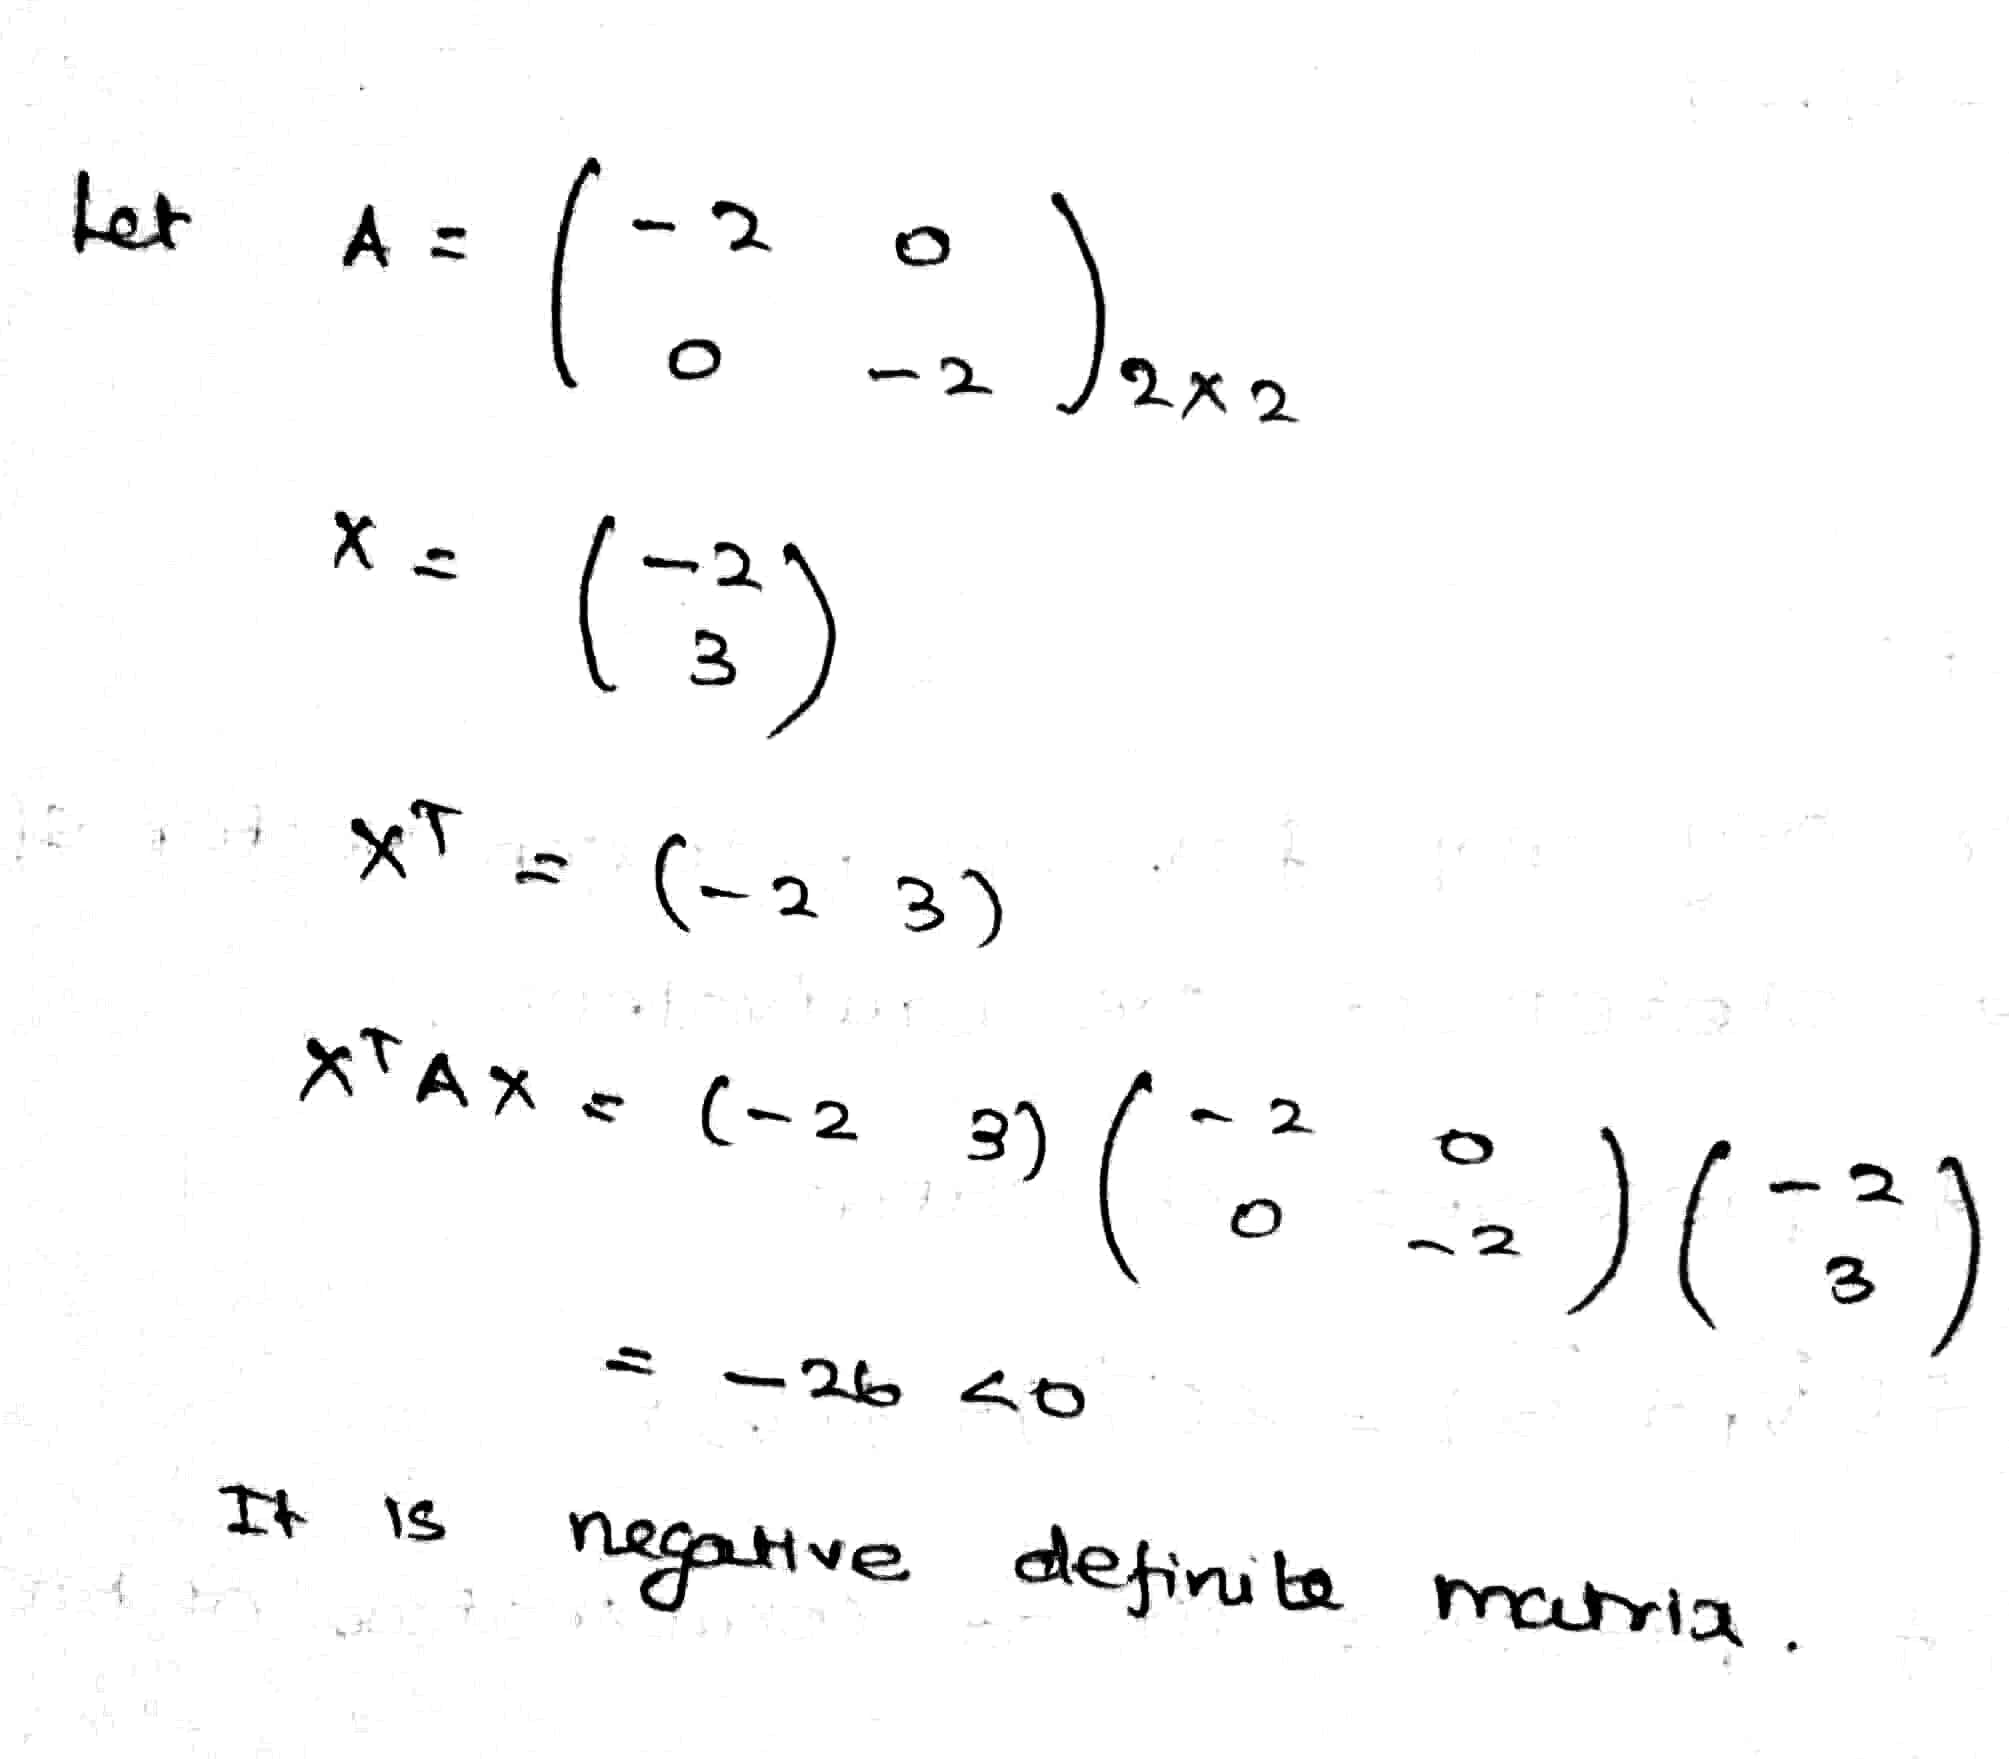 Let A = ( -2 0
0 -2 ) 2×2
X = ( -2
3 )
X^T = (-2 3)
X^T A X = (-2 3) ( -2 0
0 -2 ) ( -2
3 )
= -26 <0
It is negative definite matrix.